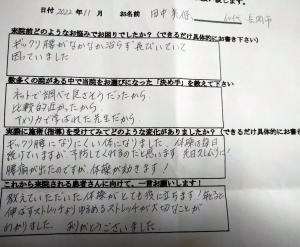 日付 2022年11月 お名前 田中美保
来院前どのようなお悩みでお困りでしたか？（できるだけ具体的にお書き下さい）
ギックリ腰がなかなか治らず長びいていて
困っていました
数多くの院がある中で当院をお選びになった「決め手」を教えて下さい
ネットで調べて良さそうだったから、
比較的近かったから
アメリカで学ばれた先生だから
実際に施術（指導）を受けてみてどのような変化がありましたか？（できるだけ具体的にお書き下さい）
ギックリ腰になりにくい体になりました。体操は毎日
続けていますが、予防してくれるのだと思います。先日久しぶりに
腰痛が出たのですが、体操が効きます！
これから来院される患者さんに向けて、一言お願いします！
教えていただいた体操がとても役に立ちます！
伸ばすストレッチよりゆるめるストレッチが大切なことが
わかりました。ありがとうございました。